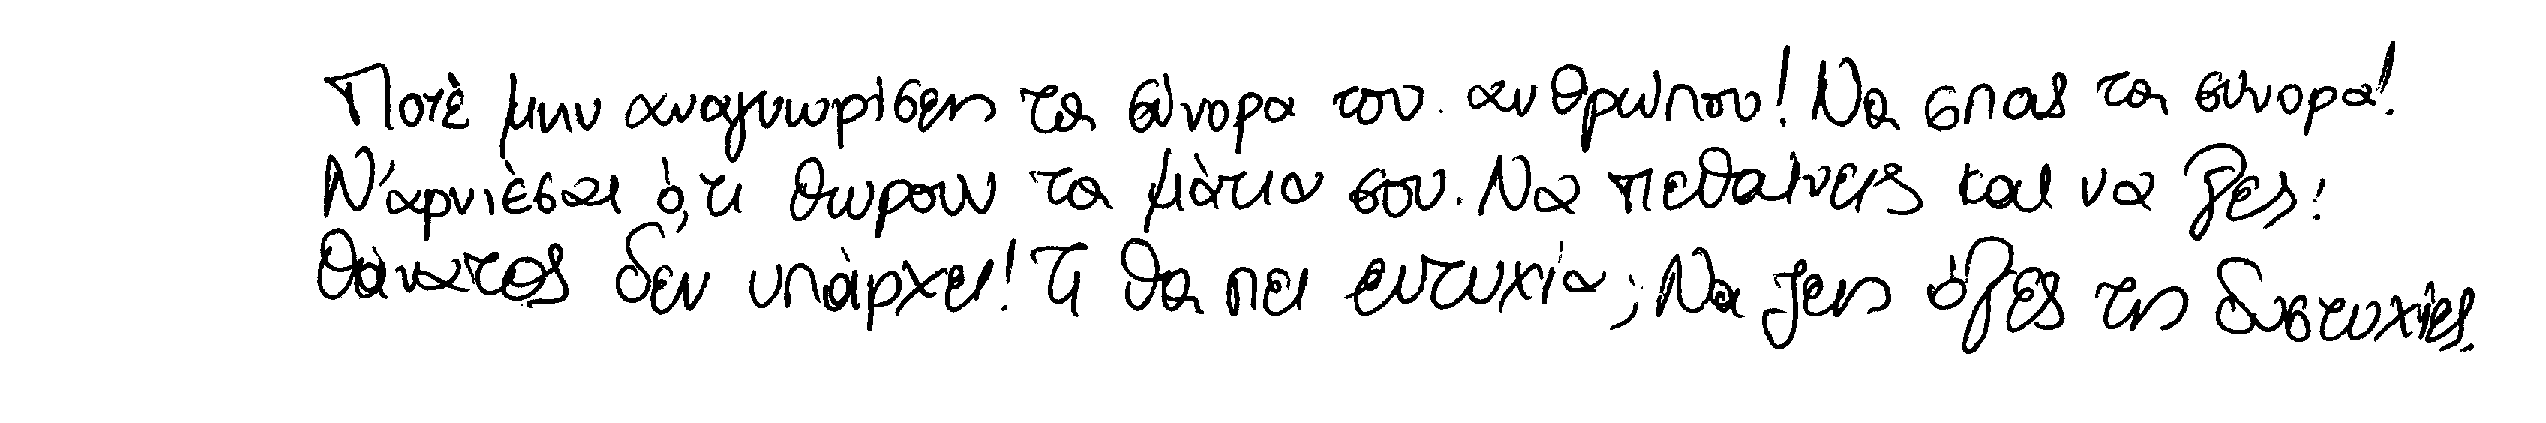 Ποτέ μην αναγνωρίσεις τα σύνορα του ανθρώπου! Να σπας τα σύνορα!
Ν'αρνιέσαι ό,τι θωρούν τα μάτια σου. Να πεθαίνεις και να ζες!
θάνατος δεν υπάρχει! Τι θα πει ευτυχία; Να ζεις όλες τις δυστυχίες.